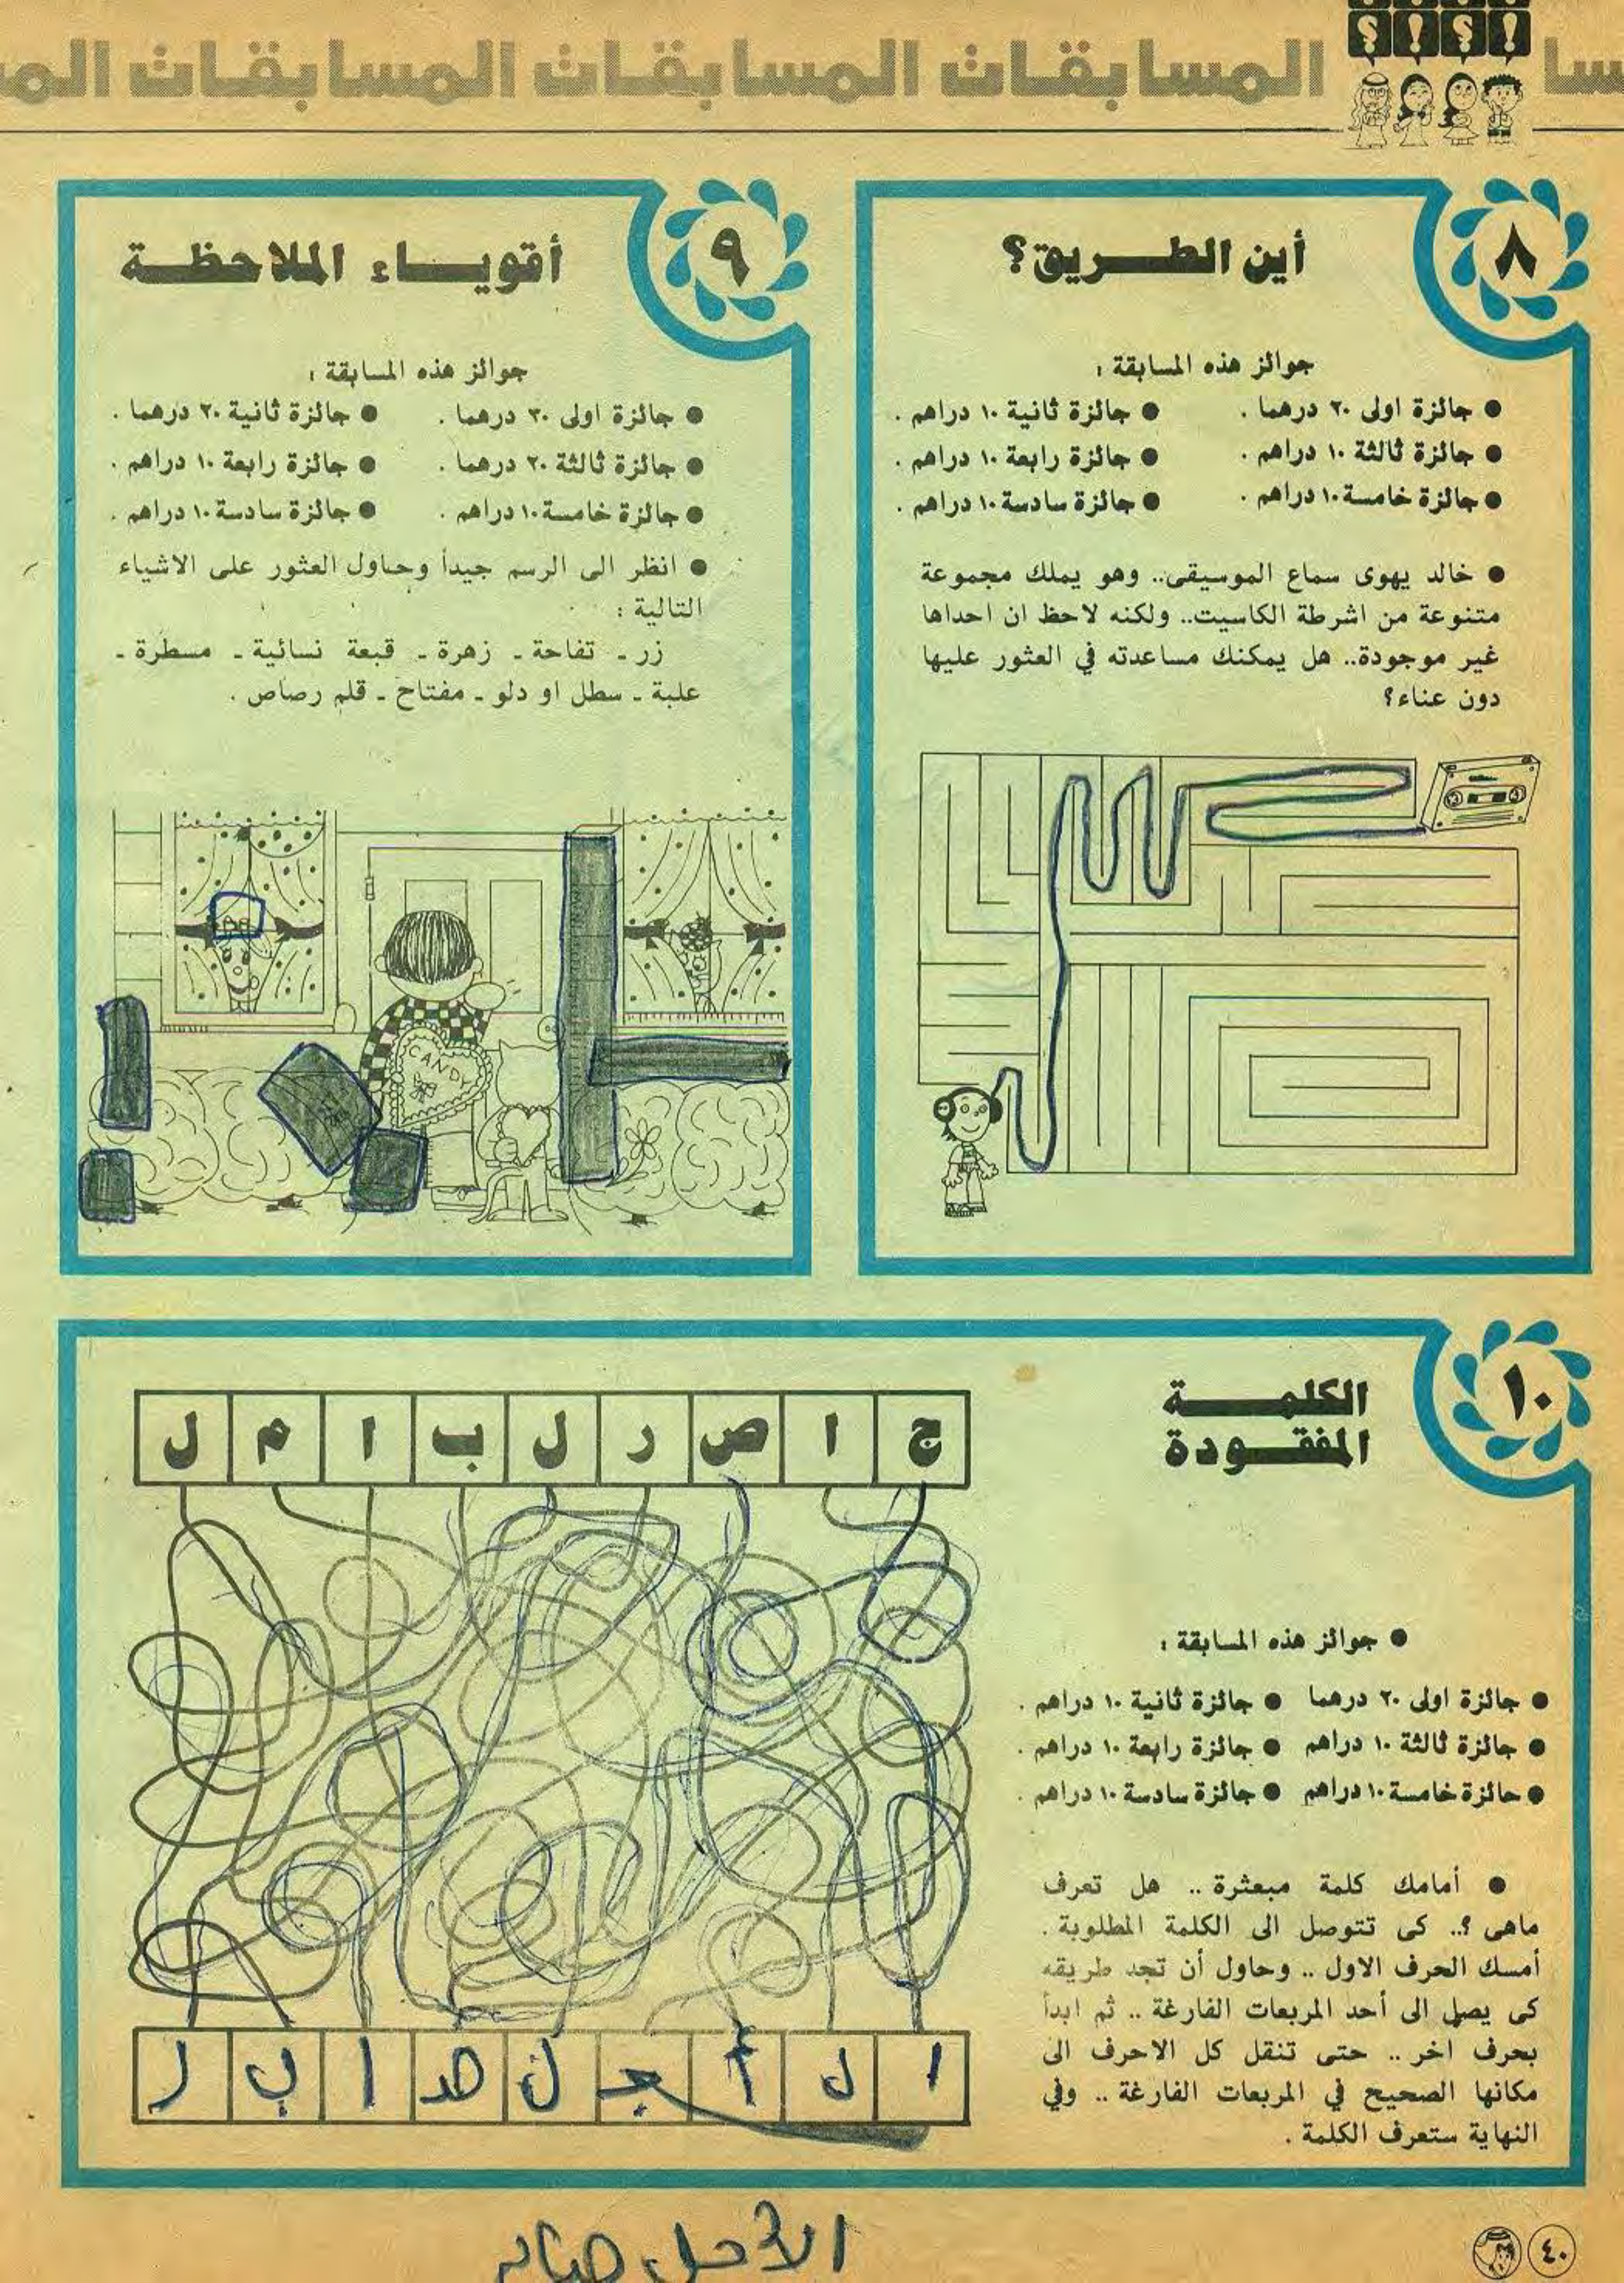 المسابقات المسابقات المسابقات
؟ ! ؟ !
٨
أين الطريق؟
جوائز هذه المسابقة :
● جائزة اولى ٢٠ درهما . ● جائزة ثانية ١٠ دراهم .
● جائزة ثالثة ١٠ دراهم . ● جائزة رابعة ١٠ دراهم .
● جائزة خامسة ١٠ دراهم . ● جائزة سادسة ١٠ دراهم .
● خالد يهوى سماع الموسيقى.. وهو يملك مجموعة
متنوعة من اشرطة الكاسيت.. ولكنه لاحظ ان احداها
غير موجودة.. هل يمكنك مساعدته في العثور عليها
دون عناء؟
٩
أقوياء الملاحظة
جوائز هذه المسابقة :
● جائزة اولى ٣٠ درهما . ● جائزة ثانية ٢٠ درهما .
● جائزة ثالثة ٢٠ درهما . ● جائزة رابعة ١٠ دراهم .
● جائزة خامسة ١٠ دراهم . ● جائزة سادسة ١٠ دراهم .
● انظر الى الرسم جيداً وحاول العثور على الاشياء
التالية :
زر ـ تفاحة ـ زهرة ـ قبعة نسائية ـ مسطرة ـ
علبة ـ سطل او دلو ـ مفتاح ـ قلم رصاص .
CANDY
١٠
الكلمة
المفقودة
● جوائز هذه المسابقة :
● جائزة اولى ٢٠ درهما ● جائزة ثانية ١٠ دراهم .
● جائزة ثالثة ١٠ دراهم ● جائزة رابعة ١٠ دراهم .
● جائزة خامسة ١٠ دراهم ● جائزة سادسة ١٠ دراهم .
● أمامك كلمة مبعثرة .. هل تعرف
ماهى ؟.. كى تتوصل الى الكلمة المطلوبة .
أمسك الحرف الاول .. وحاول أن تجد طريقه
كى يصل الى أحد المربعات الفارغة .. ثم ابدأ
بحرف اخر .. حتى تنقل كل الاحرف الى
مكانها الصحيح في المربعات الفارغة .. وفي
النهاية ستعرف الكلمة .
ج ا ص ر ل ب ا م ل
ا ل أ ج ل صـ ا ب ر
٤٠